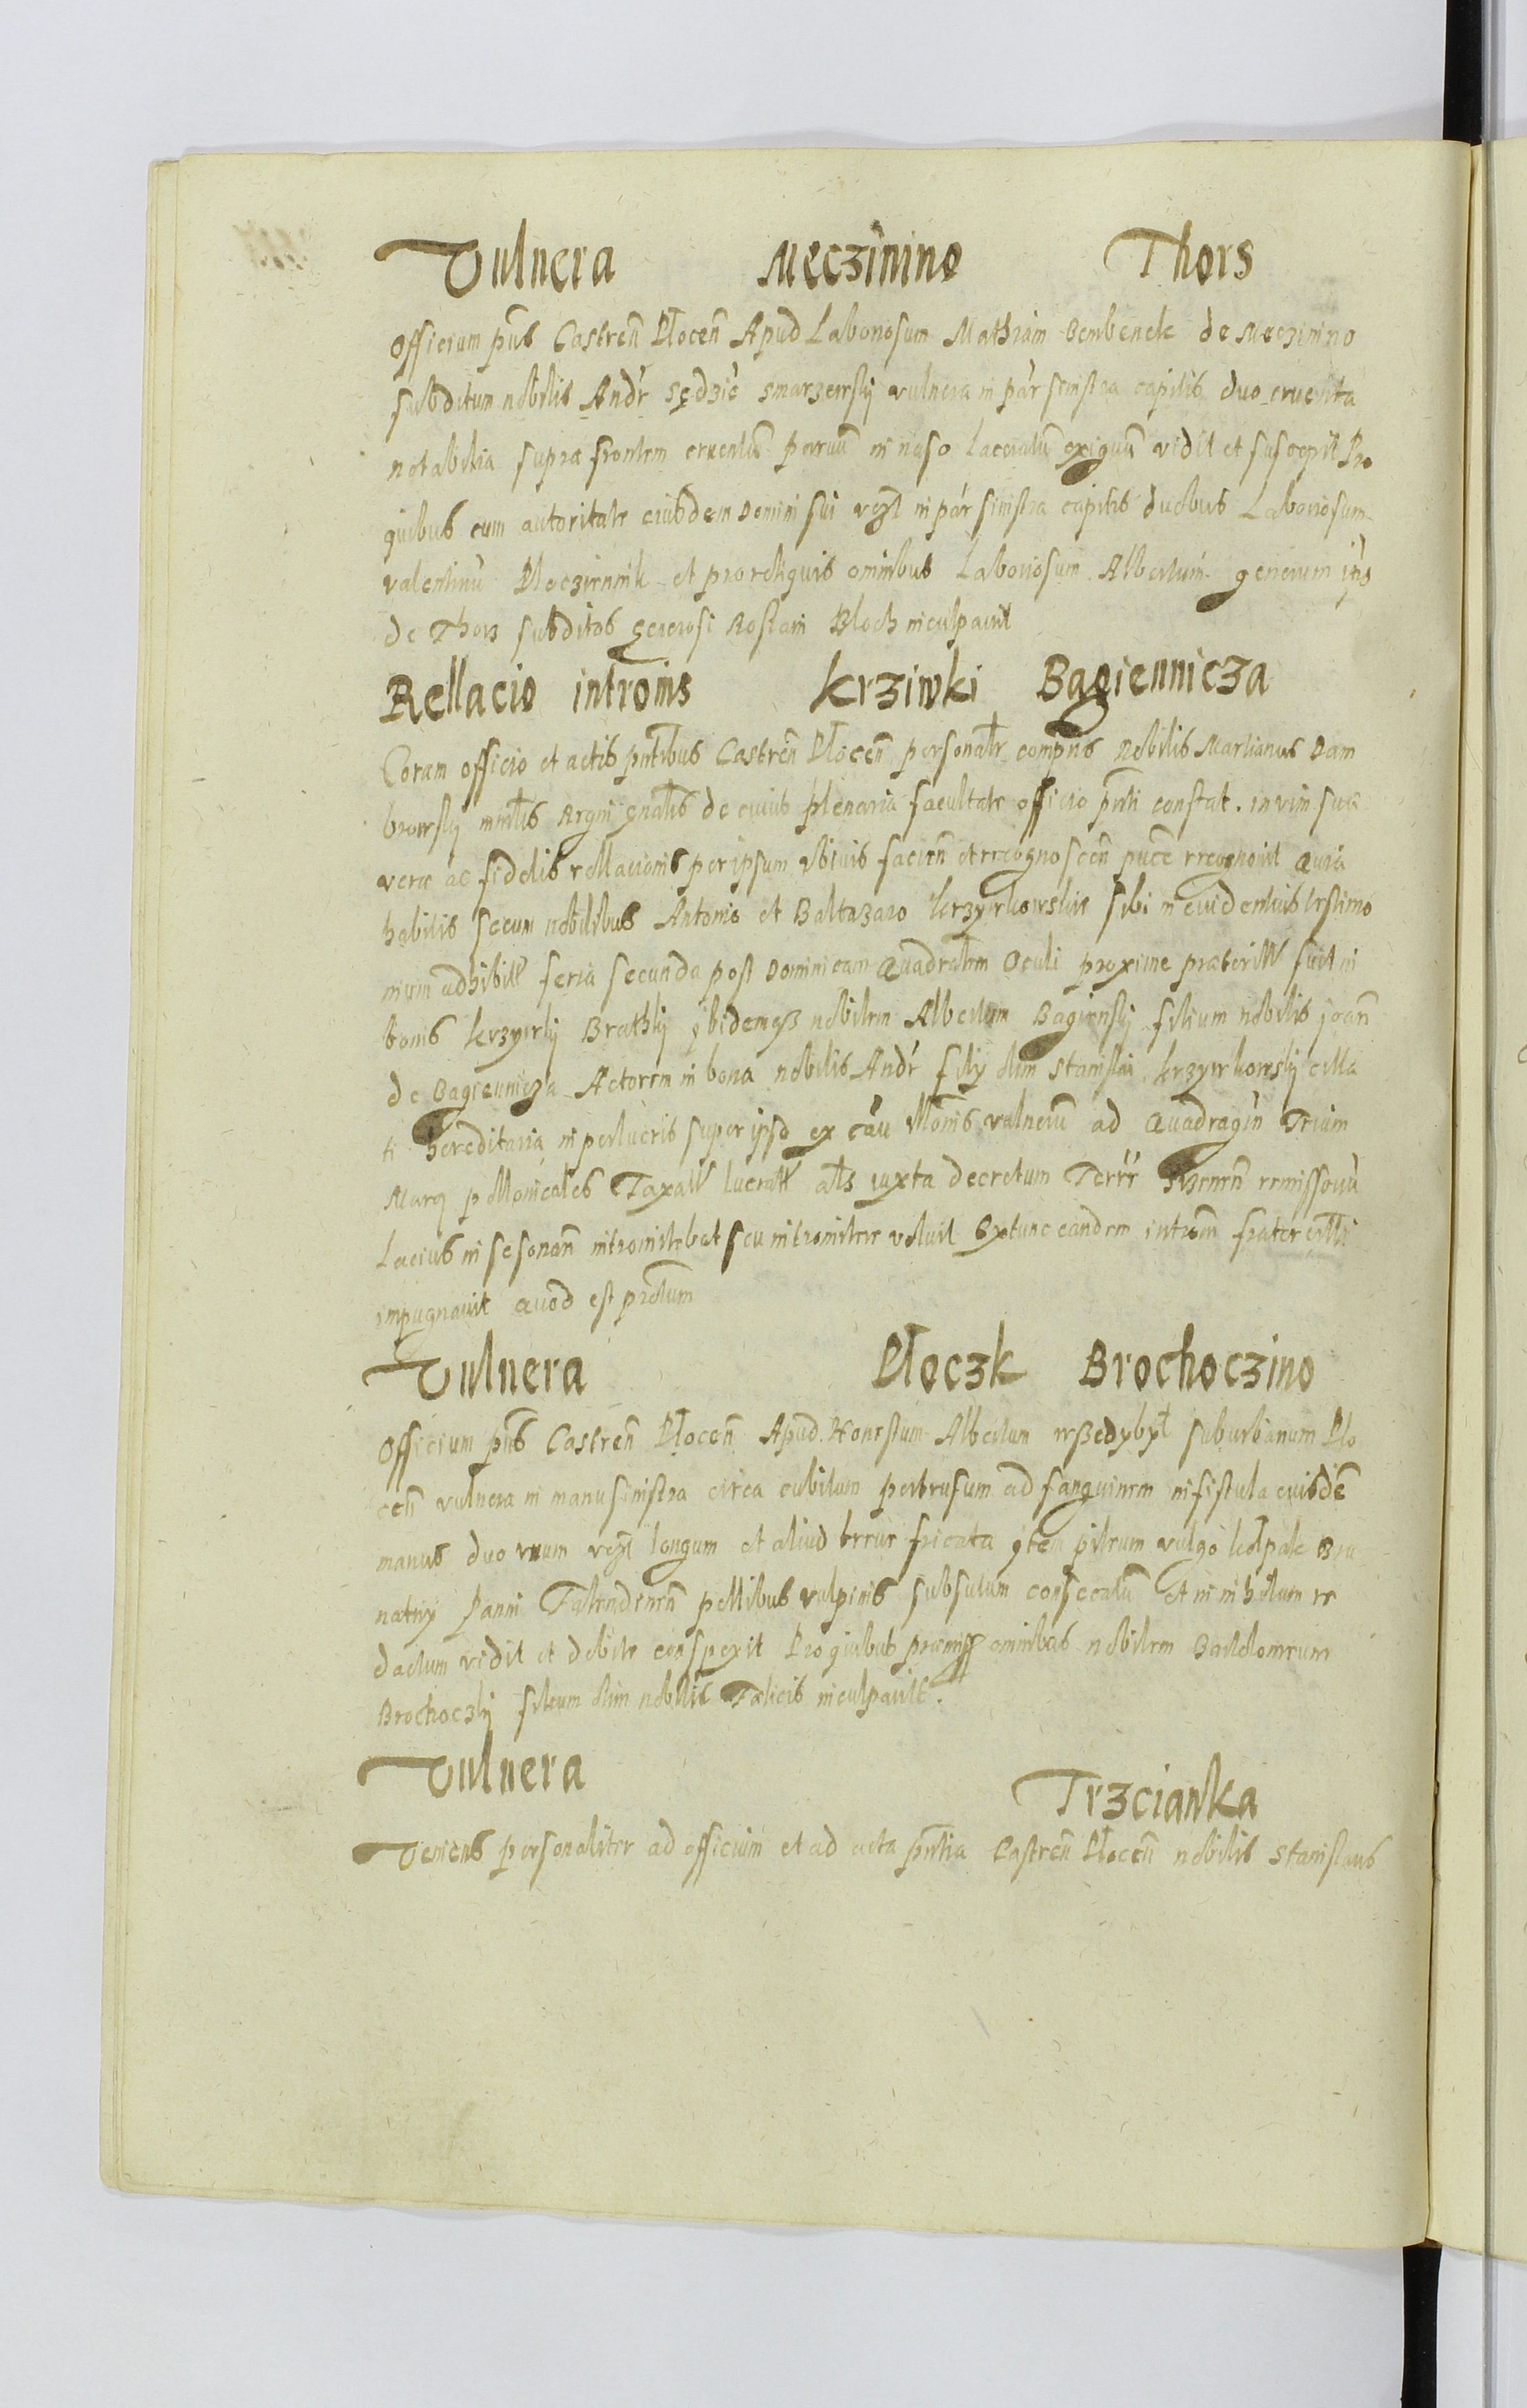 Vulnera Meczinino Thors
Officium pñs Castreñ Płoceñ Apud Laboriosum Mathiam Bembenek de Meczinino
subditum nobilis Andr Sędzic Smarzewsky vulnera in par sinistra capitis duo cruenta
notabilia supra frontem cruentũ paruũ in naso Laceratũ exiguũ vidit et suscepit Pro
quibus cum autoritate eiusdem Domini sui in par sinistra capitis duobus Laboriosum
valentinũ et pro reliquis omnibus Laboriosum Albertum generum
de Thors subditos generosi Bloch inculpauit
Rellacio intromis Krziwki Bagiennicza
Coram officio et actis pñtibus Castreñ Płoceñ personalr compñs Nobilis Martianus Dam
browsky Regni gñalis de cuius plenaria facultate officio pñti constat. in vim suæ
veræ ac fidelis rellacionis per ipsum vbiuis facieñ et recognosceñ recognouit Quia
habitis secum nobilibus Antonio et Baltazaro Krzywkowskie sibi in euidentius testimo
nium adhibit feria secunda post Dominicam Quadralem Oculi proxime præterit fuit in
bonis Krzywky Brathky ibidemqz nobilem Albertum Bagiensky filium nobilis joañ
de Bagiennicza Actorem in bona nobilis Andr fily olim Stanislai Krzywkowsky
ti hereditaria in perlucris super ipso ex vulnerũ ad Quadragin Trium
Marq Taxatt lucratt als iuxta decretum Terrr remissorũ
Lacius in se sonañ intromittebat seu intromittere voluit Extunc eandem introm frater
impugnauit Quod est
Vulnera Płoczk Brochoczino
Officium pñs Castreñ Płoceñ Apud Honestum Albertum wszedybył suburbanum Plo
ceñ vulnera in manu sinistra circa cubitum pertrusum ad sanguinem in fistula eiusdẽ
manus duo vnum longum et aliud breue fricata item pileum vulgo kołpak Bru
natny Panni pellibus vulpinis subsutum consecatũ Et in nihilum re
dactum vidit et debite conspexit Pro quibus præmiss omnibus nobilem Bartolomeum
Brochoczky filium olim nobilis Felicis inculpauit.
Vulnera Trzcianka
Veniens personaliter ad officium et ad acta pñtia Castreñ Płoceñ nobilis Stanislaus